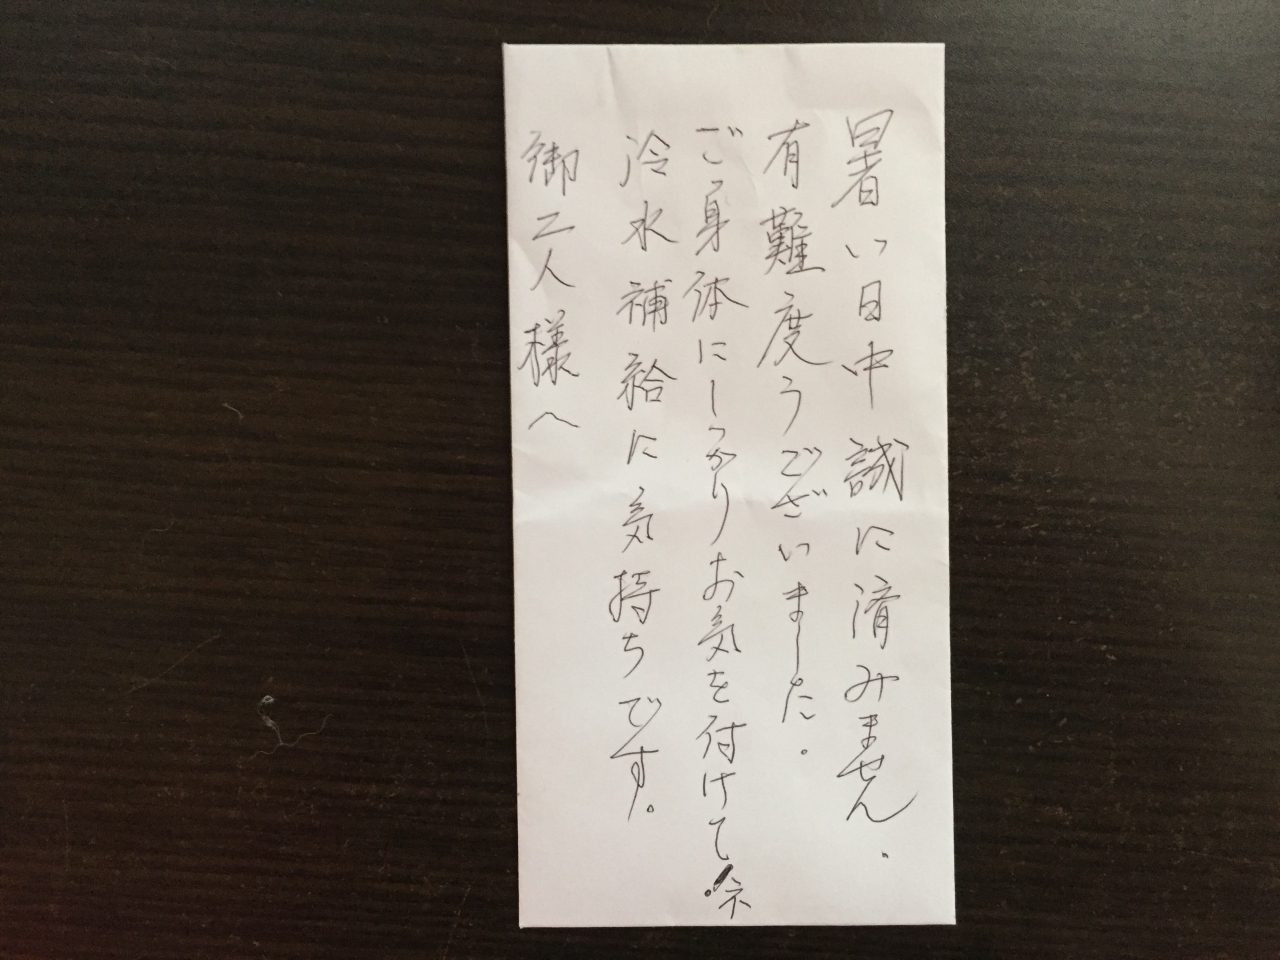 暑い日中誠に済みません.
有難度うございました.
ご身体にしっかりお気を付けてネ.
冷水補給に気持ちです。
御二人様へ